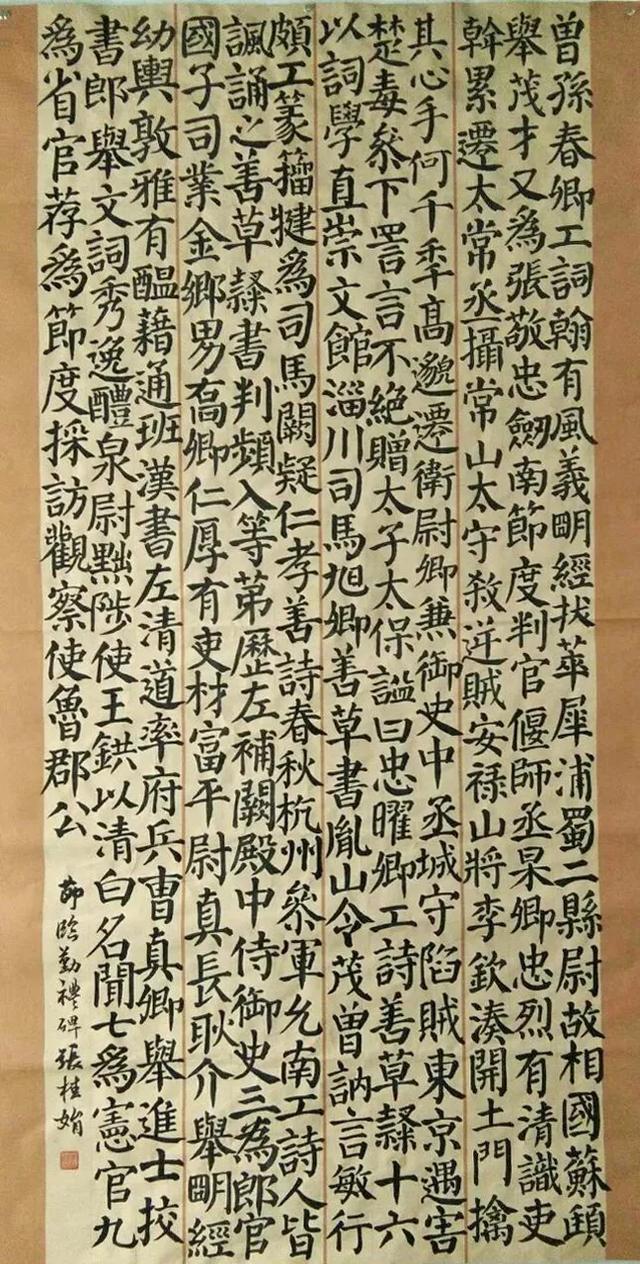 曾孫春卿工詞翰有風義明經拔萃犀浦蜀二縣尉故相國蘇頲
舉茂才又爲張敬忠劒南節度判官偃師丞杲卿忠烈有清識吏
幹累遷太常丞攝常山太守殺逆賊安禄山將李欽湊開土門擒
其心手何千秊高邈遷衛尉卿兼御史中丞城守陷賊東京遇害
楚毒參下詈言不絕贈太子太保謚曰忠曜卿工詩善草隸十六
以詞學直崇文館淄川司馬旭卿善草書胤山令茂曾訥言敏行
頗工篆籀犍爲司馬闕疑仁孝善詩春秋杭州參軍允南工詩人皆
諷誦之善草隸書判頻入等第歷左補闕殿中侍御史三爲郎官
國子司業金鄉男喬卿仁厚有吏材富平尉真長耿介舉明經
幼輿敦雅有醞藉通班漢書左清道率府兵曹真卿舉進士挍
書郎舉文詞秀逸醴泉尉黜陟使王鉷以清白名聞七爲憲官九
爲省官荐爲節度採訪觀察使魯郡公
節臨勤禮碑張桂娟